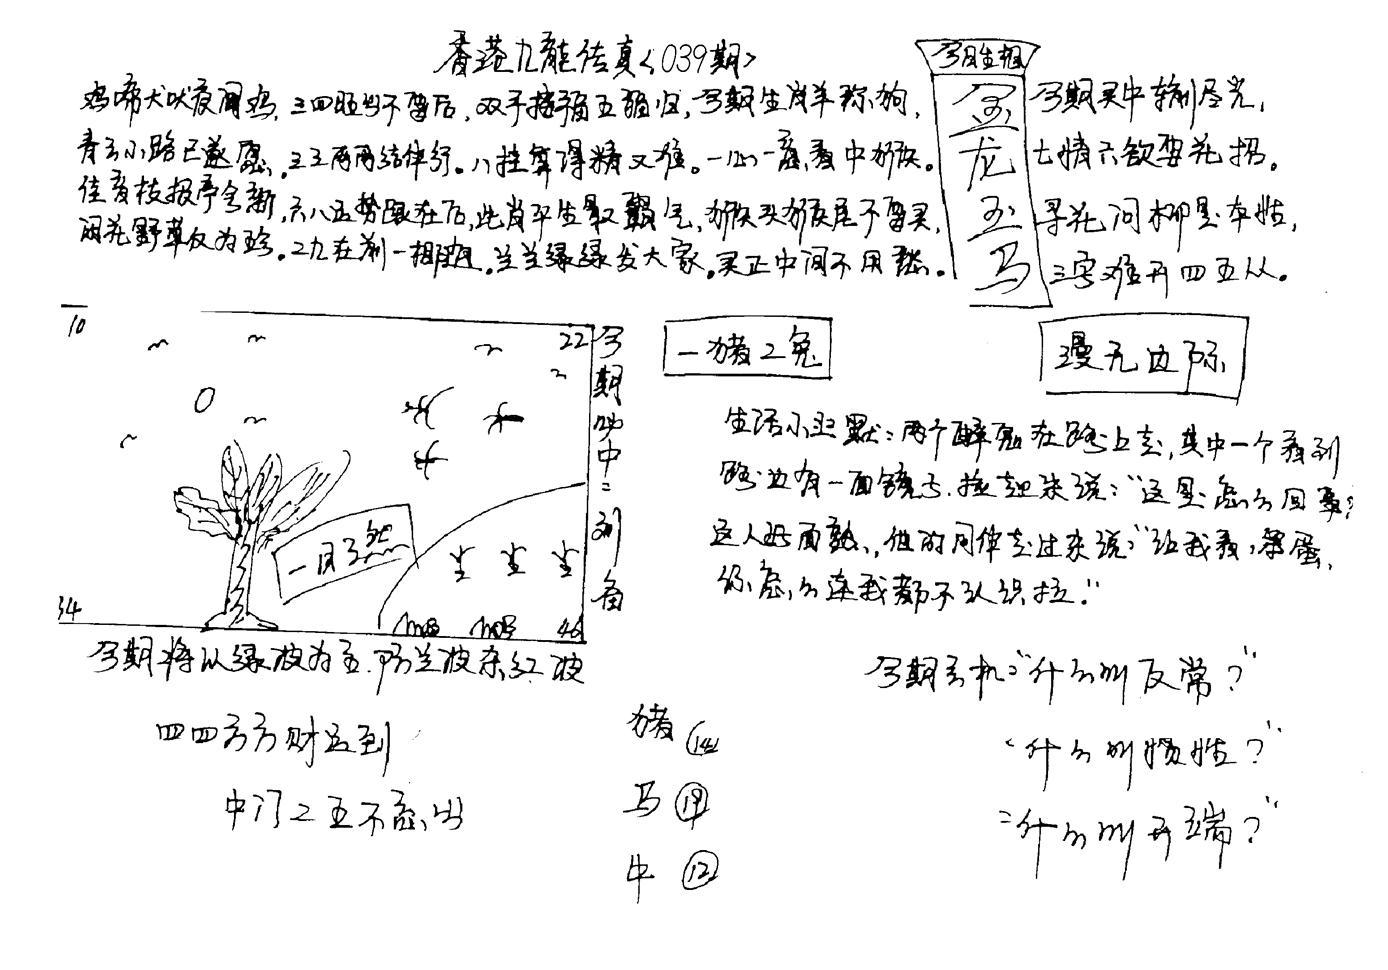 香港九龍传真《039期》
今日生相
金龙玉马
鸡啼犬吠夜闻鸡,三四旺当不要后,双手接福五福归,今期生肖羊称狗,
今期买中勒尽光,
青云小路已遂愿.三五两两结伴行.八挂算得精又准。一心一意看中猴。
七情六欲要花招。
佳音枝报亭今新,六八运势跟在后,此肖平生最霸气,猴头猴尾不要买,
寻花问柳是本性,
闲花野草仅为珍.二九在前一相随.兰兰绿绿发大家.买正中间不用愁.
三字难开四五从.
10
22
34
46
一目了然
今期必中二列备
一猪二兔
漫无边际
生活小幽默:两个醉鬼在路上走,其中一个看到
路边有一面镜子.捡起来说:"这是怎么回事?
这人好面熟,他的同伴走过来说:"给我看,笨蛋,
你怎么连我都不认识拉."
今期将以绿波为主.防兰波杀红波
四四方方财运到
中门二五不意出
猪 14
马 19
牛 12
今期玄机"什么叫反常?"
"什么叫惯性?"
"什么叫开端?"